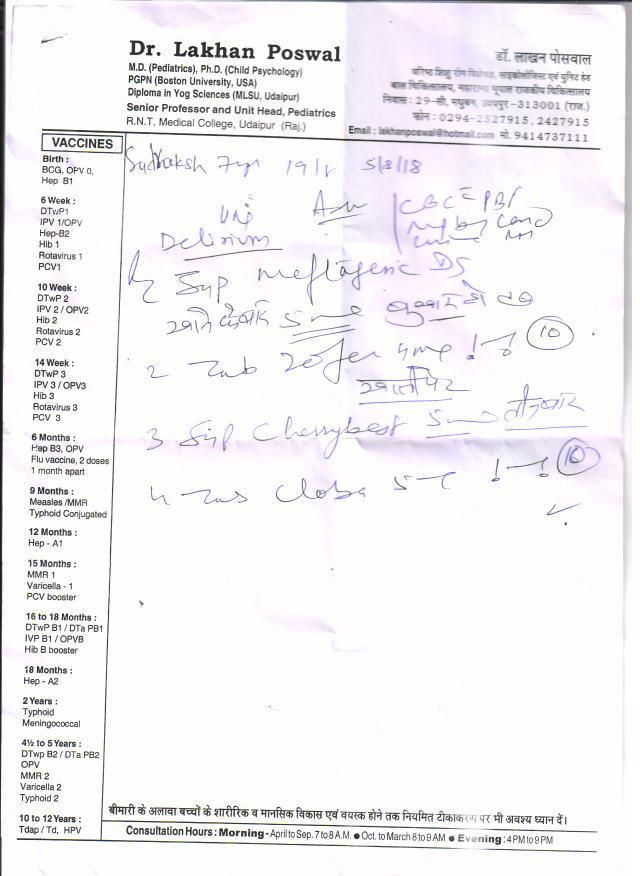 Dr. Lakhan Poswal
M.D. (Pediatrics), Ph.D. (Child Psychology)
PGPN (Boston University, USA)
Diploma in Yog Sciences (MLSU, Udaipur)
Senior Professor and Unit Head, Pediatrics
R.N.T. Medical College, Udaipur (Raj.)
डॉ. लाखन पोसवाल
वरिष्ठ शिशु रोग विशेषज्ञ, साइकोलोजिस्ट एवं युनिट हेड
बाल चिकित्सालय, महाराणा भूपाल राजकीय चिकित्सालय
निवास : 29-सी, मधुबन, उदयपुर-313001 (राज.)
फोन : 0294-2527915, 2427915
Email : lakhanposwal@hotmail.com मो. 9414737111
VACCINES
Birth :
BCG, OPV 0,
Hep B1
6 Week :
DTwP1
IPV 1/OPV
Hep-B2
Hib 1
Rotavirus 1
PCV1
10 Week :
DTwP 2
IPV 2 / OPV2
Hib 2
Rotavirus 2
PCV 2
14 Week :
DTwP 3
IPV 3 / OPV3
Hib 3
Rotavirus 3
PCV 3
6 Months :
Hep B3, OPV
Flu vaccine, 2 doses
1 month apart
9 Months :
Measles /MMR
Typhoid Conjugated
12 Months :
Hep - A1
15 Months :
MMR 1
Varicella - 1
PCV booster
16 to 18 Months :
DTwP B1 / DTa PB1
IVP B1 / OPVB
Hib B booster
18 Months :
Hep - A2
2 Years :
Typhoid
Meningococcal
4½ to 5 Years :
DTwp B2 / DTa PB2
OPV
MMR 2
Varicella 2
Typhoid 2
10 to 12 Years :
Tdap / Td, HPV
7yr 5/8/18
CBC
Delirium
Syp Meftagesic DS
5 ml बुखार
2 Tab Zofer 4mg 10
खाली पेट
3 Syp Cherrybest 5ml तीन बार
4 Tab Cloba 5 10
बीमारी के अलावा बच्चों के शारीरिक व मानसिक विकास एवं वयस्क होने तक नियमित टीकाकरण पर भी अवश्य ध्यान दें।
Consultation Hours : Morning - April to Sep. 7 to 8 A.M. ● Oct. to March 8 to 9 AM ● Evening : 4 PM to 9 PM